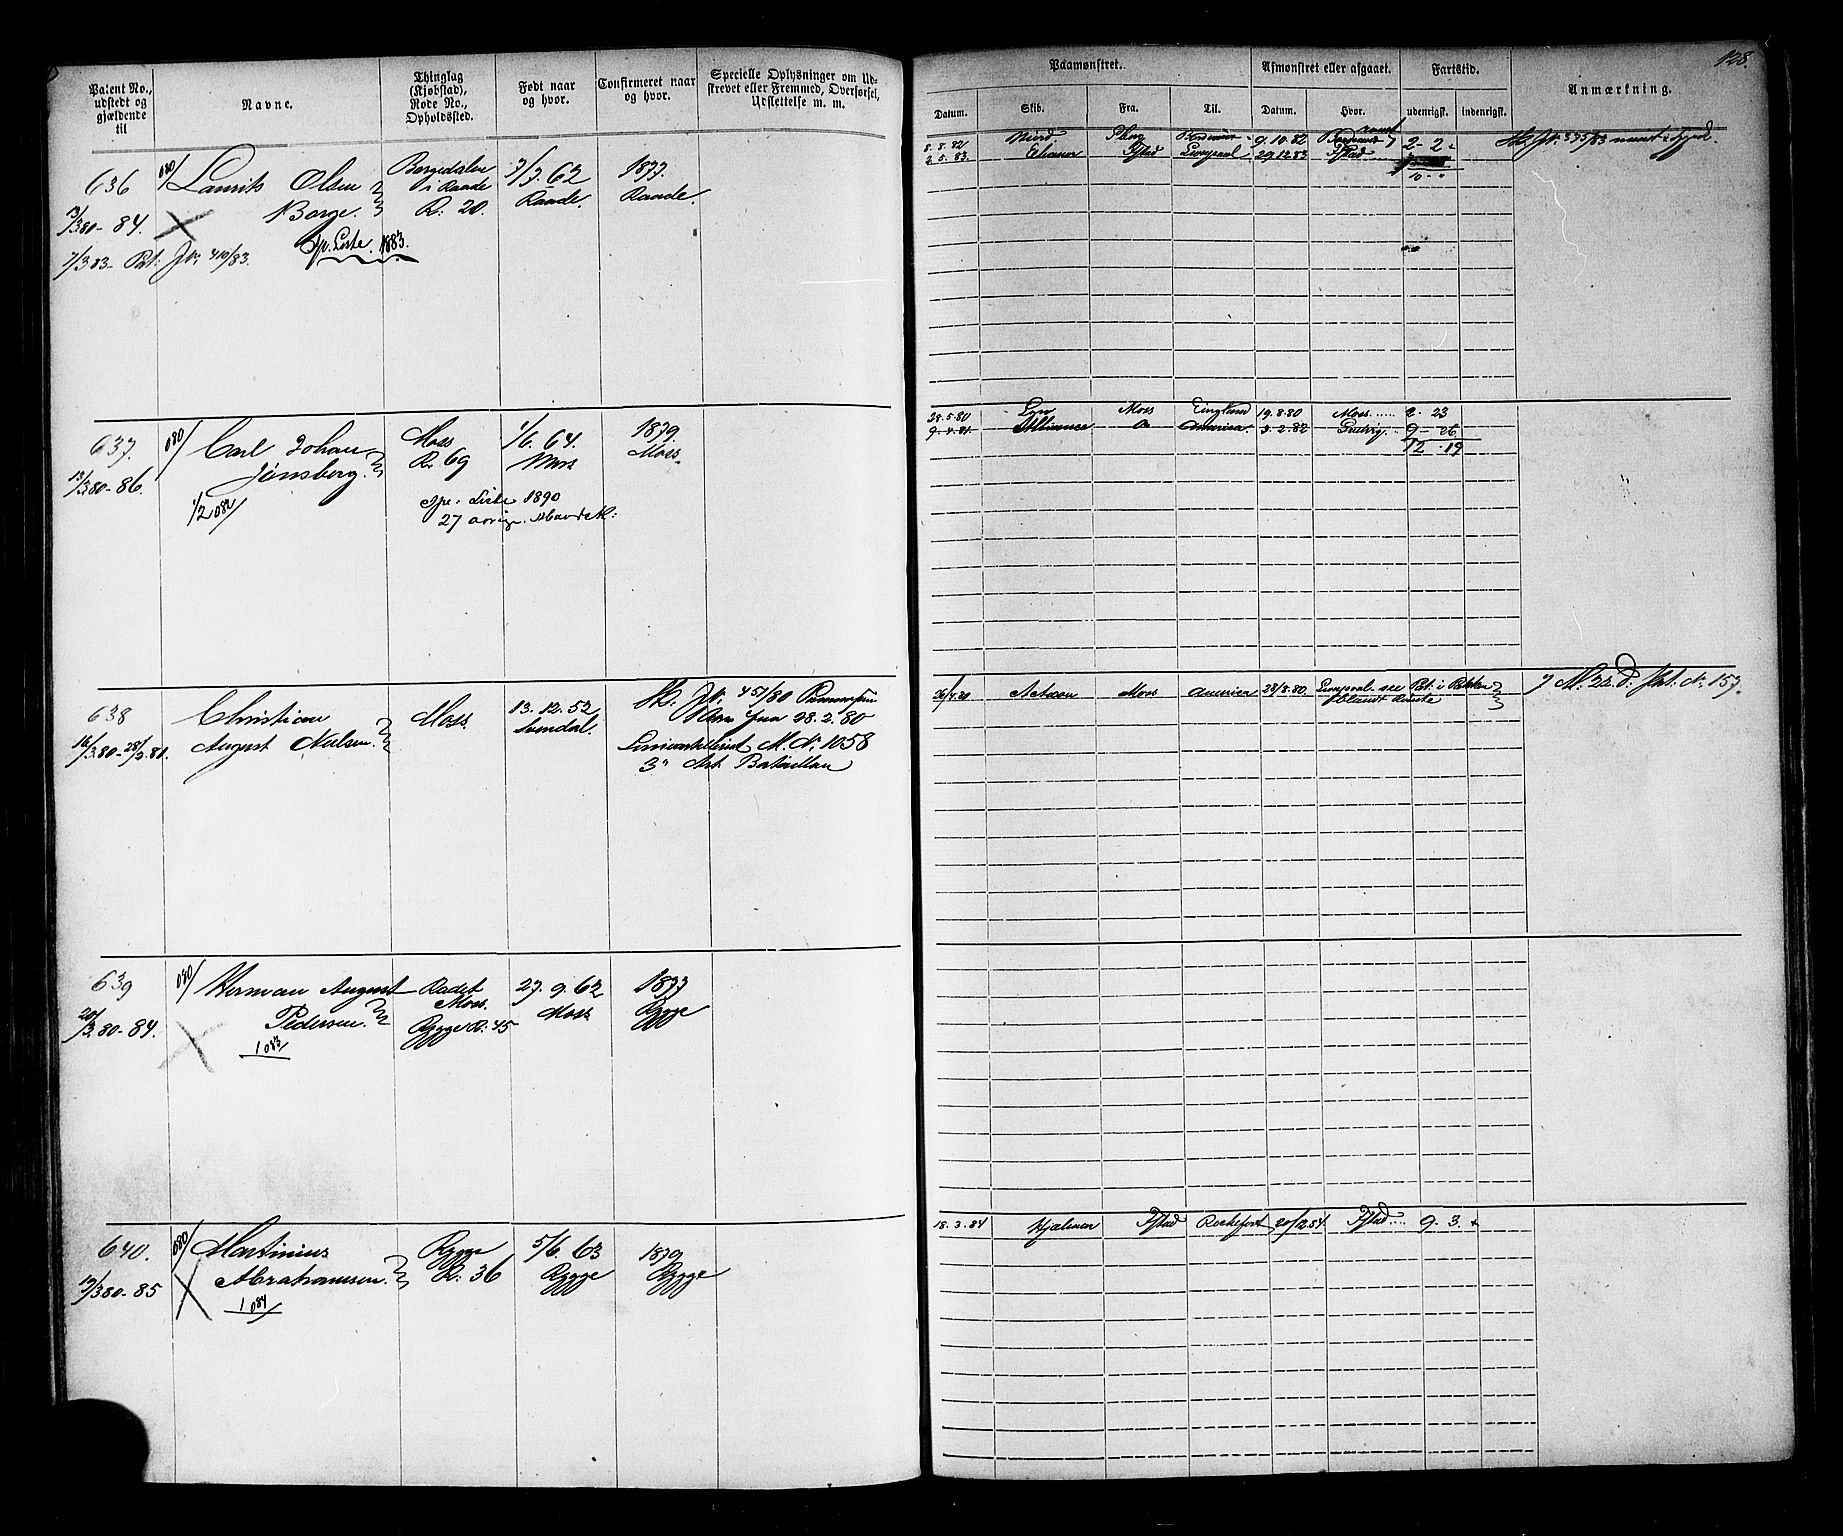 128.
Patent No., udstedt og gjældende til
Navne.
Thinglag (Kjøbstad), Rode No., Opholdssted.
Født naar og hvor.
Confirmeret naar og hvor.
Specielle Oplysninger om Udskrevet eller Fremmed, Overførsel, Udslettelse m. m.
Paamønstret.
Afmønstret eller afgaaet.
Fartstid.
Anmærkning.
Datum.
Skib.
Fra.
Til.
Datum.
Hvor.
udenrigsk.
indenrigsk.
636
080/
Laurits Olsen
Borge.
13/3 80 - 84.
Borgedalen
i Raade
R. 20.
7/7. 62
Raade.
1877.
Raade.
7/3 83 - Pat. Jr. 410/83.
Sp. Liste. 1883.
8. 8. 82 Fborg 9. 10. 82 2 - 2 -
2. 5. 83. Elianor Fstad Liverpool 29.12.83 Fstad
10 - "
637.
080/
Carl Johan
Jönsberg.
13/3 80 - 86.
1/2 082/
Moss
R. 69
1/6. 64.
Moss
1879.
Moss.
Spe. Liste 1890
27 aarige
28.5.80 Lyn Moss England 19.8.80 Moss 2. 23
9. 4. 81. Alliance America. 2. 82 9 - 26
12. 19
638
Christian
August Nielsen.
16/3.80 - 28/2.81.
Moss.
13. 12. 52
Svendal.
Jr. 451/80
fra 28. 2. 80
M. Nr. 1058
3die Art. Bataillon
26/4.80 Actæon Moss America 28/8.80. Liverpool
7 M. 22 d. Pat. Nr. 157.
639
080/
Herman August
Pedersen.
20/3.80 - 84.
1 083/
Radet
Moss.
Rygge R. 45
27. 9. 62
Moss
1877
Rygge
640.
080/
Martinius
Abrahamsen.
19/3 80 - 85
1 084/
Rygge
R. 36
5/6. 63
Rygge
1879
Rygge
18. 3. 84 Hjalmar Fstad Rochefort 20/12.84. Fstad 9. 3. +